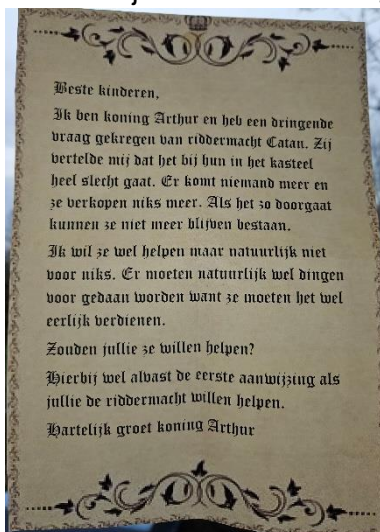 Beste kinderen,
Ik ben koning Arthur en heb een dringende
vraag gekregen van riddermacht Catan. Zij
vertelde mij dat het bij hun in het kasteel
heel slecht gaat. Er komt niemand meer en
ze verkopen niks meer. Als het zo doorgaat
kunnen ze niet meer blijven bestaan.
Ik wil ze wel helpen maar natuurlijk niet
voor niks. Er moeten natuurlijk wel dingen
voor gedaan worden want ze moeten het wel
eerlijk verdienen.
Zouden jullie ze willen helpen?
Hierbij wel alvast de eerste aanwijzing als
jullie de riddermacht willen helpen.
Hartelijk groet koning Arthur